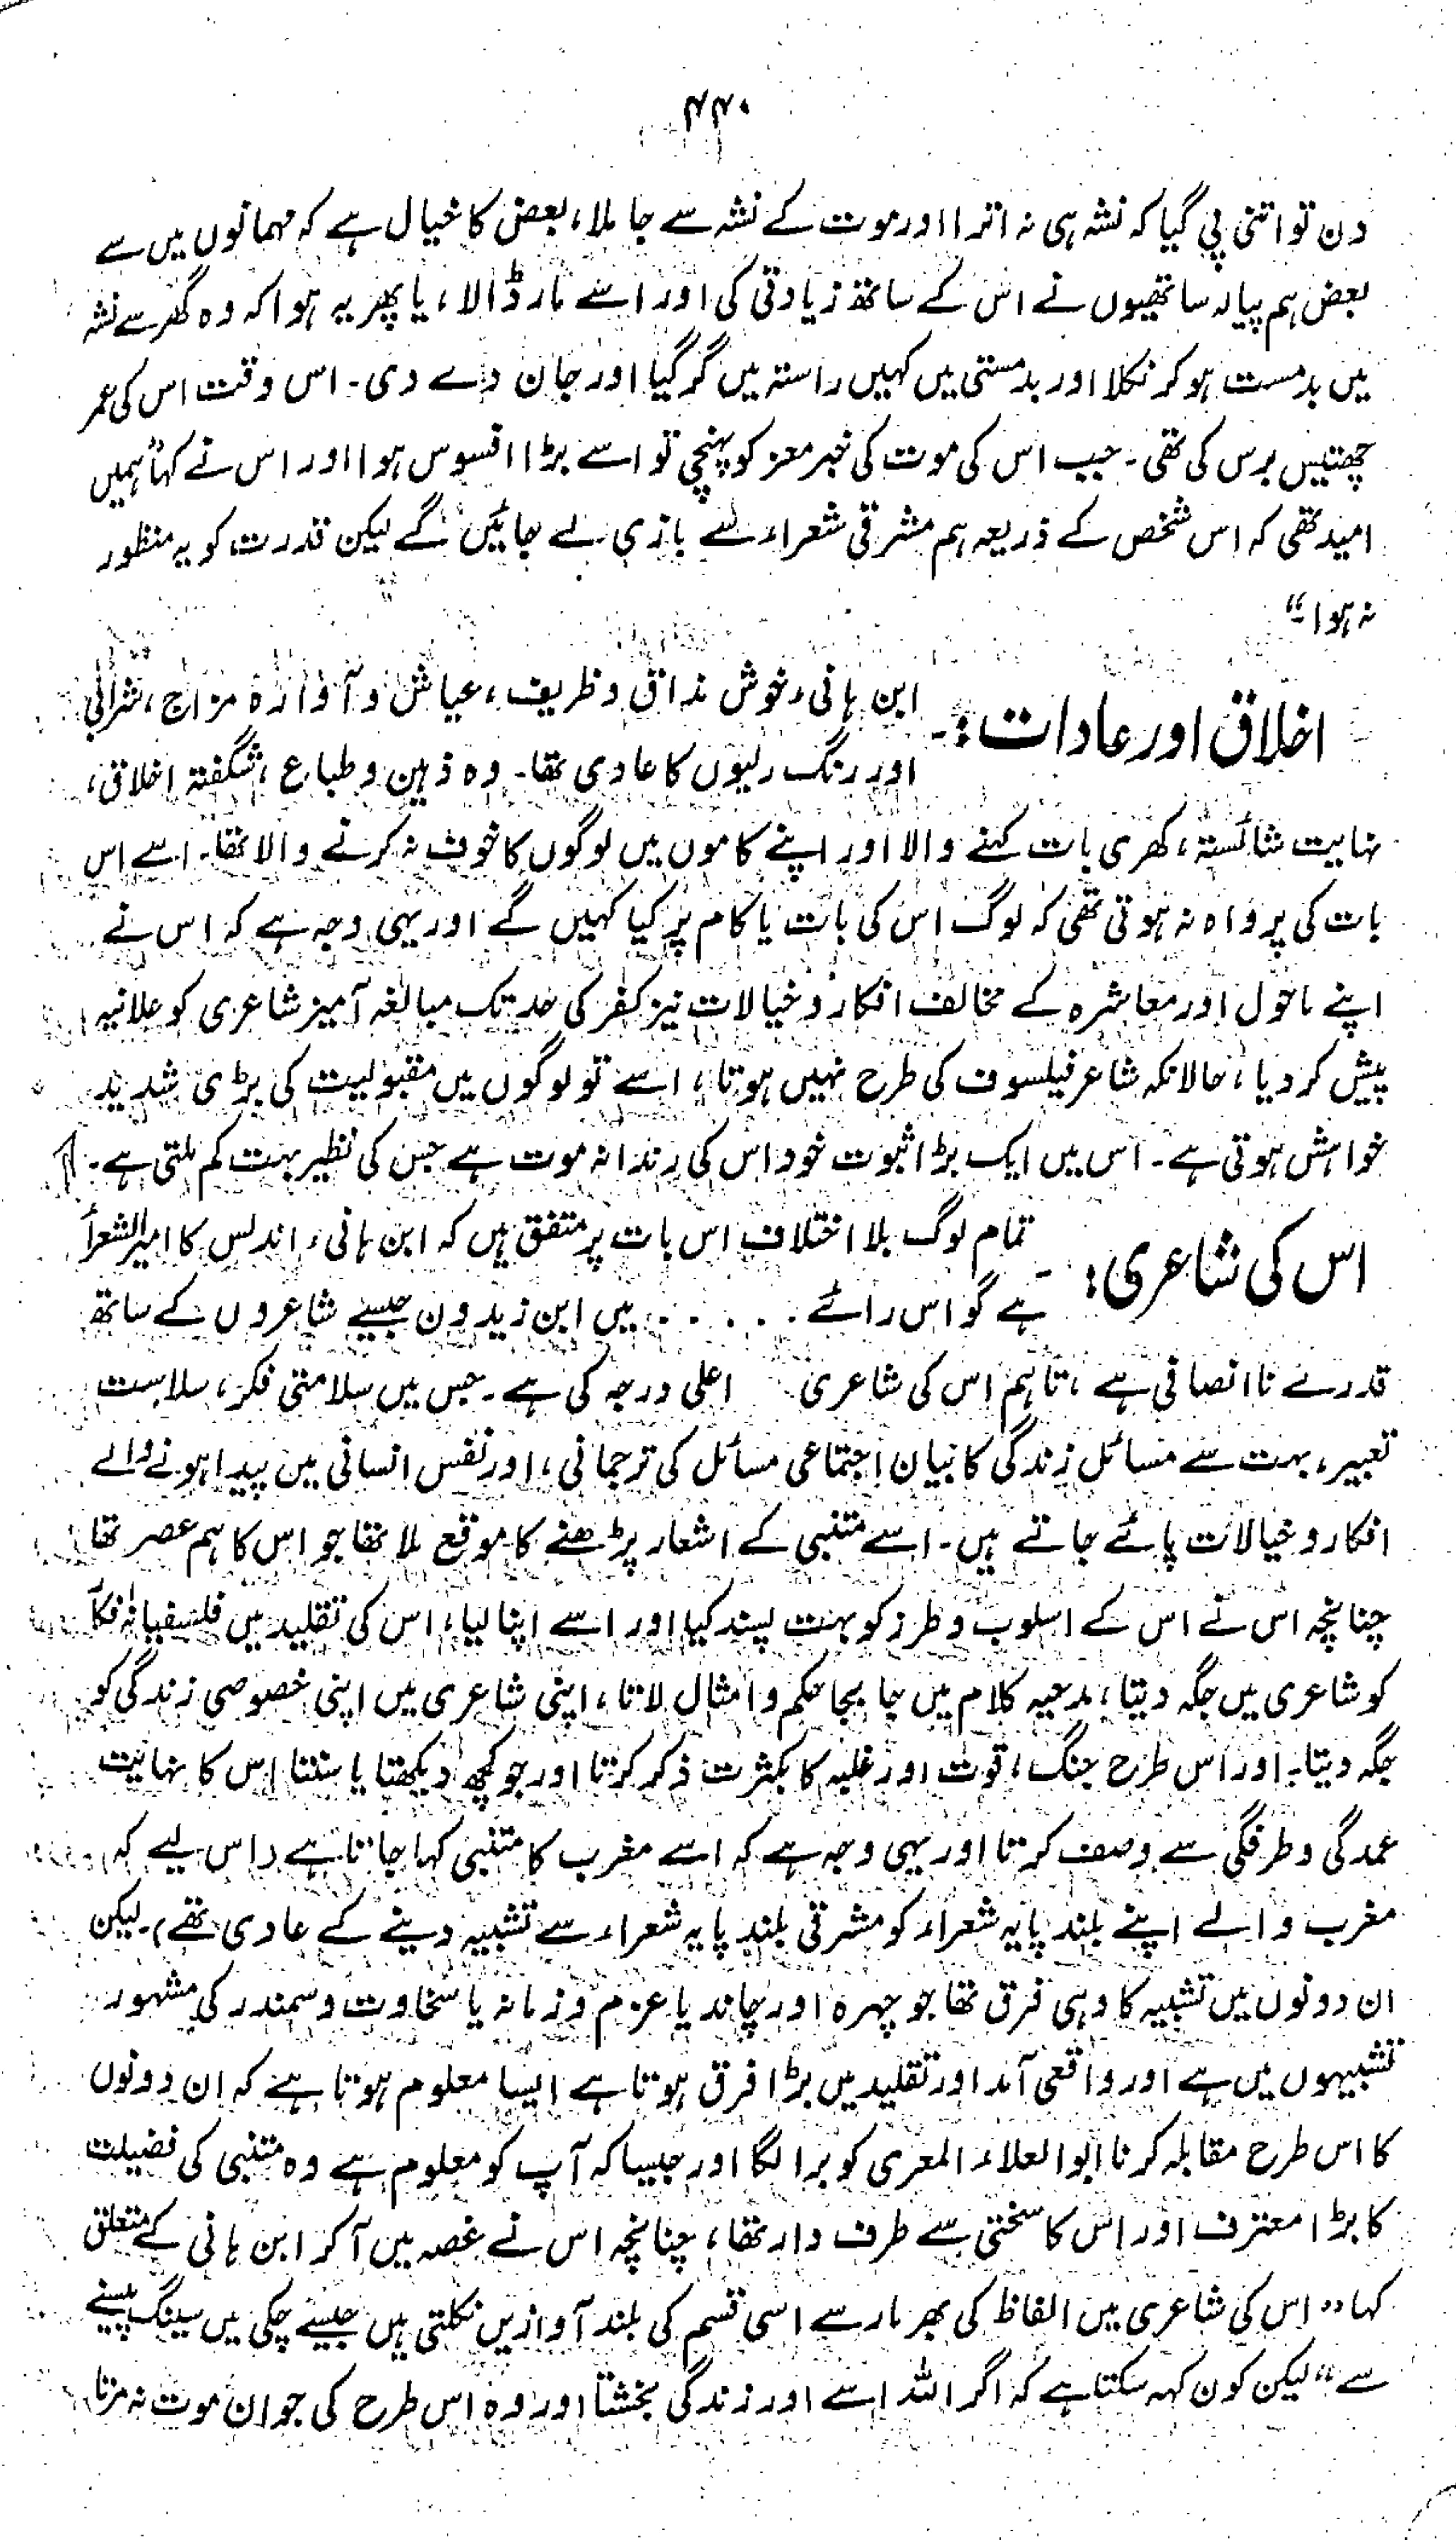 ۴۴۰
دن تو اتنی پی گیا کہ نشہ ہی نہ اترا اور موت کے نشہ سے جا ملا، بعض کا خیال ہے کہ مہمانوں میں سے
بعض ہم پیالہ ساتھیوں نے اس کے ساتھ زیادتی کی اور اسے مار ڈالا، یا پھر یہ ہوا کہ وہ گھر سے نشہ
میں بدمست ہو کر نکلا اور بدمستی میں کہیں راستہ میں گر گیا اور جان دے دی۔ اس وقت اس کی عمر
چھتیس برس کی تھی۔ جب اس کی موت کی خبر معز کو پہنچی تو اسے بڑا افسوس ہوا اور اس نے کہا "ہمیں
امید تھی کہ اس شخص کے ذریعہ ہم مشرقی شعراء سے بازی لے جائیں گے لیکن قدرت کو یہ منظور
نہ ہوا۔"
اخلاق اور عادات:۔ ابن ہانی، خوش مذاق و ظریف، عیاش و آوارہ مزاج، شرابی
اور رنگ رلیوں کا عادی تھا۔ وہ ذہین و طباع، شگفتہ اخلاق،
نہایت شائستہ، کھری بات کہنے والا اور اپنے کاموں میں لوگوں کا خوف نہ کرنے والا تھا۔ اسے اس
بات کی پرواہ نہ ہوتی تھی کہ لوگ اس کی بات یا کام پر کیا کہیں گے اور یہی وجہ ہے کہ اس نے
اپنے ماحول اور معاشرہ کے مخالف افکار و خیالات نیز کفر کی حد تک مبالغہ آمیز شاعری کو علانیہ
پیش کر دیا، حالانکہ شاعر فیلسوف کی طرح نہیں ہوتا، اسے تو لوگوں میں مقبولیت کی بڑی شدید
خواہش ہوتی ہے۔ اس میں ایک بڑا ثبوت خود اس کی رندانہ موت ہے جس کی نظیر بہت کم ملتی ہے۔
اس کی شاعری:۔ تمام لوگ بلا اختلاف اس بات پر متفق ہیں کہ ابن ہانی، اندلس کا امیر الشعرأ
ہے گو اس رائے . . . . . میں ابن زیدون جیسے شاعروں کے ساتھ
قدرے ناانصافی ہے، تاہم اس کی شاعری اعلی درجہ کی ہے۔ جس میں سلامتی فکر، سلاست
تعبیر، بہت سے مسائل زندگی کا بیان اجتماعی مسائل کی ترجمانی، اور نفس انسانی میں پیدا ہونے والے
افکار و خیالات پائے جاتے ہیں۔ اسے متنبی کے اشعار پڑھنے کا موقع ملا تھا جو اس کا ہم عصر تھا
چنانچہ اس نے اس کے اسلوب و طرز کو بہت پسند کیا اور اسے اپنا لیا، اس کی تقلید میں فلسفیانہ
کو شاعری میں جگہ دیتا، مدحیہ کلام میں جا بجا حکم و امثال لاتا، اپنی شاعری میں اپنی خصوصی زندگی کو
جگہ دیتا۔ اور اس طرح جنگ، قوت اور غلبہ کا بکثرت ذکر کرتا اور جو کچھ دیکھتا یا سنتا اس کا نہایت
عمدگی و طرفگی سے وصف کرتا اور یہی وجہ ہے کہ اسے مغرب کا متنبی کہا جاتا ہے (اس لیے کہ
مغرب والے اپنے بلند پایہ شعراء کو مشرقی بلند پایہ شعراء سے تشبیہ دینے کے عادی تھے)۔ لیکن
ان دونوں میں تشبیہ کا وہی فرق تھا جو چہرہ اور چاند یا عزم و زمانہ یا سخاوت و سمندر کی مشہور
تشبیہوں میں ہے اور واقعی آمد اور تقلید میں بڑا فرق ہوتا ہے ایسا معلوم ہوتا ہے کہ ان دونوں
کا اس طرح مقابلہ کرنا ابو العلاء المعری کو برا لگا اور جیسا کہ آپ کو معلوم ہے وہ متنبی کی فضیلت
کا بڑا معترف اور اس کا سختی سے طرف دار تھا، چنانچہ اس نے غصہ میں آ کر ابن ہانی کے متعلق
کہا "اس کی شاعری میں الفاظ کی بھر مار سے اسی قسم کی بلند آوازیں نکلتی ہیں جیسے چکی میں سینگ پیسنے
سے" لیکن کون کہہ سکتا ہے کہ اگر اللہ اسے اور زندگی بخشتا اور وہ اس طرح کی جوان موت نہ مرتا